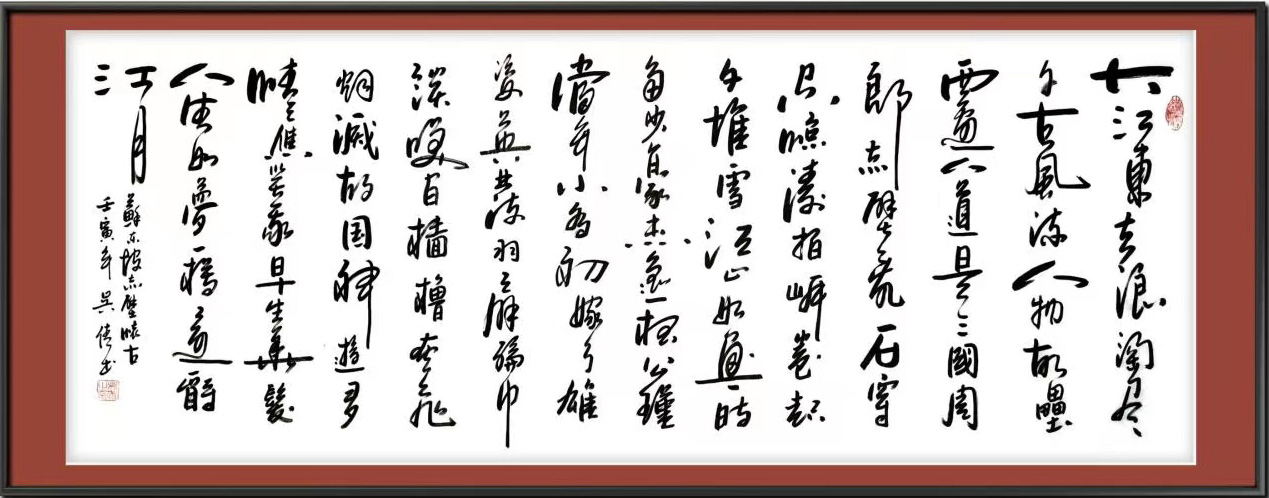 大江東去浪淘尽
千古風流人物故壘
西邊人道是三國周
郎赤壁乱石穿
空惊濤拍岸卷起
千堆雪江山如画一时
多少豪杰遥想公瑾
當年小乔初嫁了雄
姿英發羽扇纶巾
談笑间檣櫓灰飞
烟滅故国神遊多
情應笑我早生華髮
人生如夢一樽還酹
江月
蘇东坡赤壁懷古
壬寅年吴书